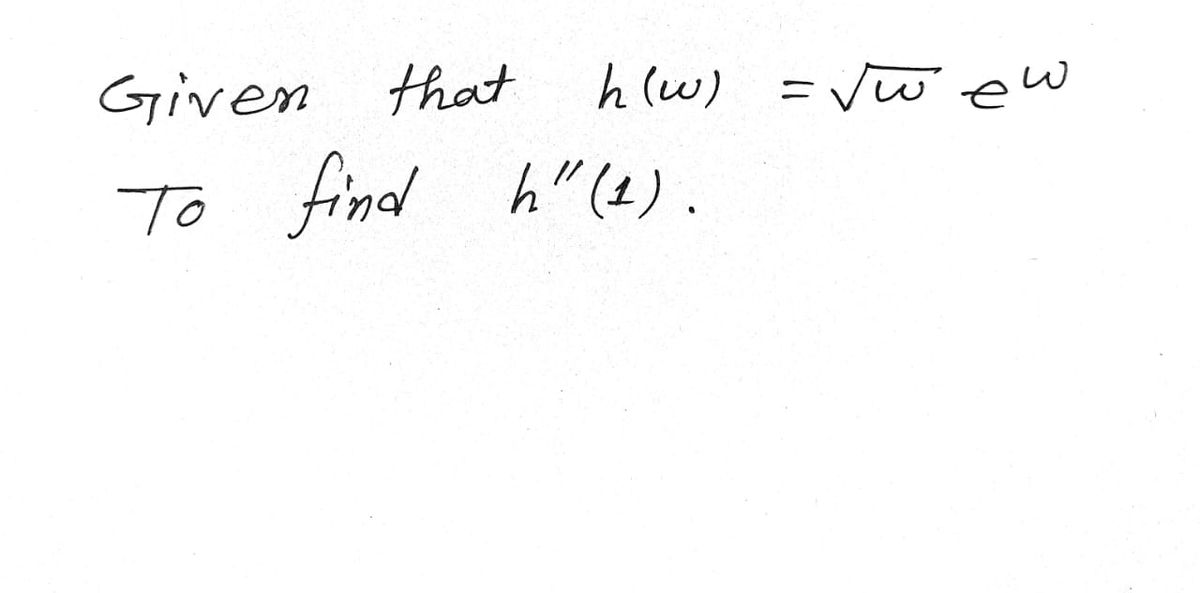 Given that h(w) = √w e^w
To find h"(1).